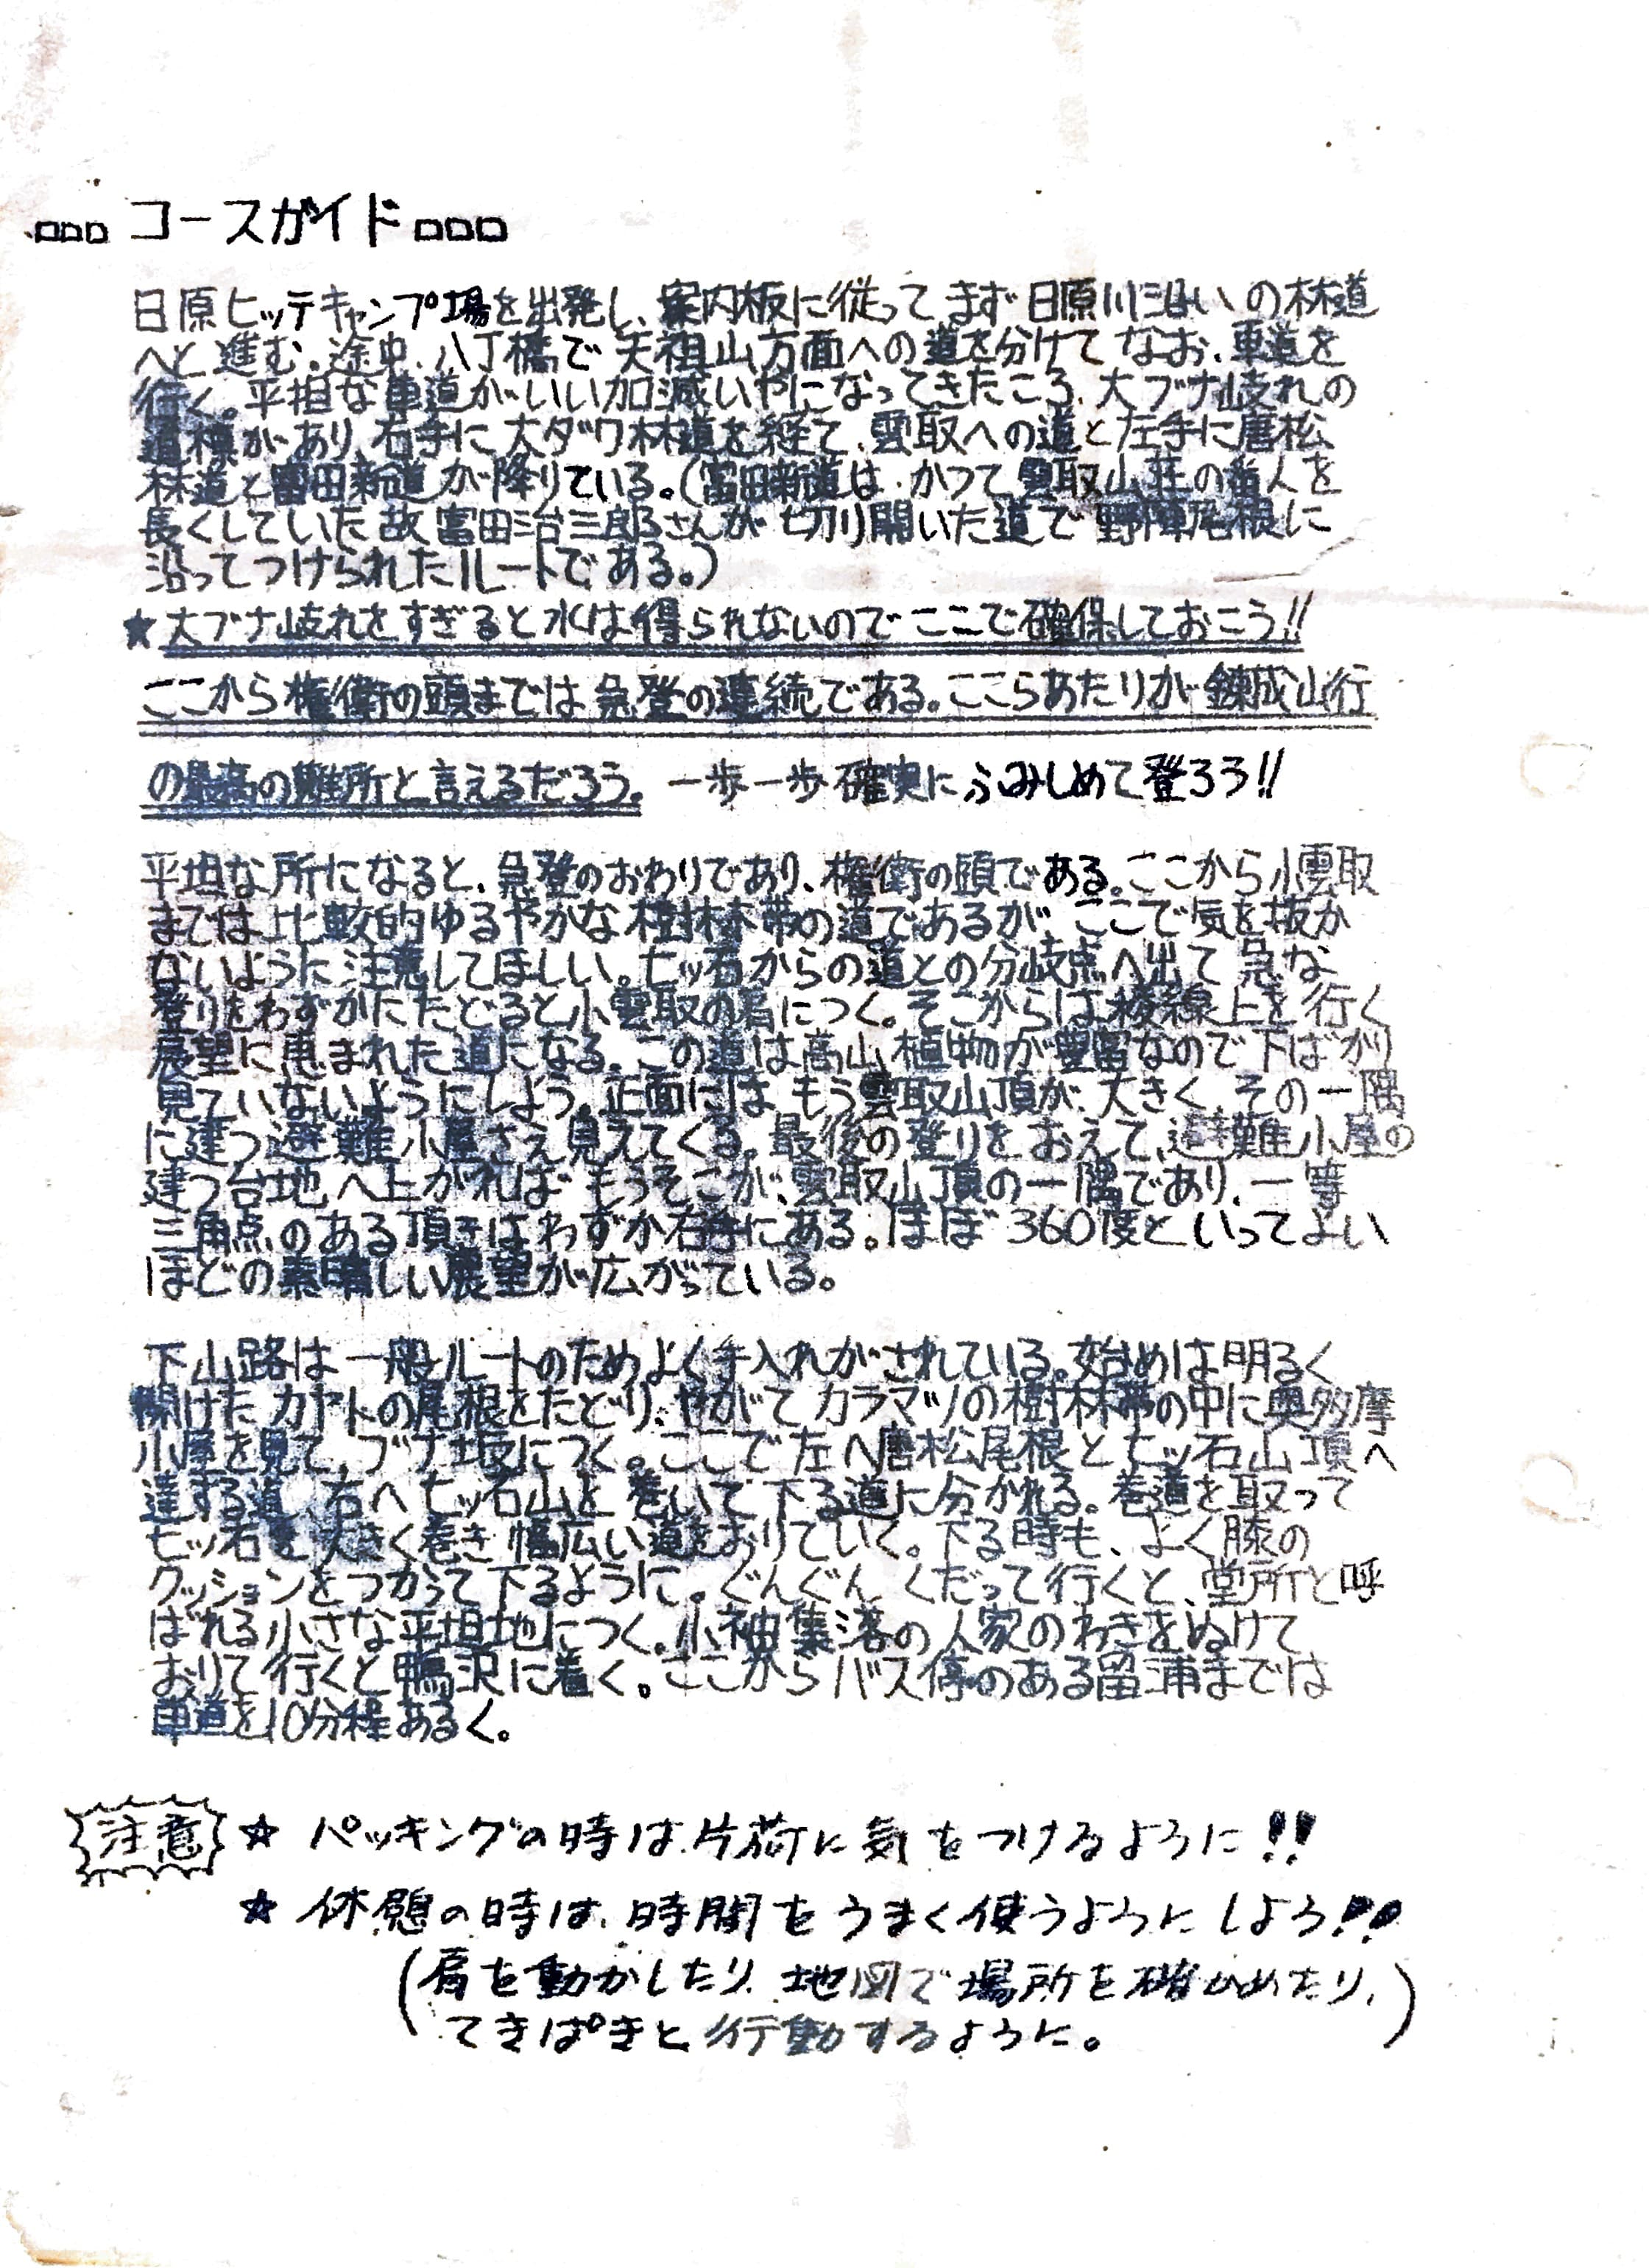 コースガイド
日原ヒッテキャンプ場を出発し、案内板に従ってまず日原川沿いの林道
へと進む。途中、八丁橋で天祖山方面への道を分けてなお、車道を
行く。平担な車道がいい加減いやになってきたころ、大ブナ岐れの
道標があり、右手に大ダワ林道を経て、雲取への道と左手に唐松
林道と富田新道が降りている。(富田新道は、かつて雲取山荘の番人を
長くしていた故富田治三郎さんが切り開いた道で野陣尾根に
沿ってつけられたルートである。)
★大ブナ岐れをすぎると水は得られないのでここで確保しておこう!!
ここから権衛の頭までは急登の連続である。ここらあたりが錬成山行
の最高の難所と言えるだろう。一歩一歩確実にふみしめて登ろう!!
平坦な所になると、急登のおわりであり、権衛の頭である。ここから小雲取
までは比較的ゆるやかな樹林帯の道であるが、ここで気を抜か
ないように注意してほしい。七ッ石からの道との分岐点へ出て急な
登りをわずかにたどると小雲取の肩につく。そこからは稜線上を行く
展望に恵まれた道になる。この道は高山植物が豊富なので下ばかり
見ていないようにしよう。正面にはもう雲取山頂が、大きく、その一隅
に建つ避難小屋さえ見えてくる。最後の登りをおえて、避難小屋の
建つ台地へ上がればもうそこが、雲取山頂の一隅であり、一等
三角点のある頂きはわずか右手にある。ほぼ360度といってよい
ほどの素晴しい展望が広がっている。
下山路は一般ルートのためよく手入れがされている。始めは明るく
開けたカヤトの尾根をたどり、やがてカラマツの樹林帯の中に奥多摩
小屋を見て、ブナ坂につく。ここで左へ唐松尾根と七ッ石山頂へ
達する道、右へ七ッ石山を巻いて下る道に分かれる。巻道を取って
七ッ石を大きく巻き幅広い道をおりていく。下る時も、よく膝の
クッションをつかって下るように。ぐんぐんくだって行くと、堂所と呼
ばれる小さな平坦地につく。小袖集落の人家のわきをぬけて
おりて行くと鴨沢に着く。ここからバス停のある留浦までは
車道を10分程あるく。
注意 ☆ パッキングの時は片荷に気をつけるように!!
☆ 休憩の時は、時間をうまく使うようにしよう!!
(肩を動かしたり、地図で場所を確かめたり、
てきぱきと行動するように。)